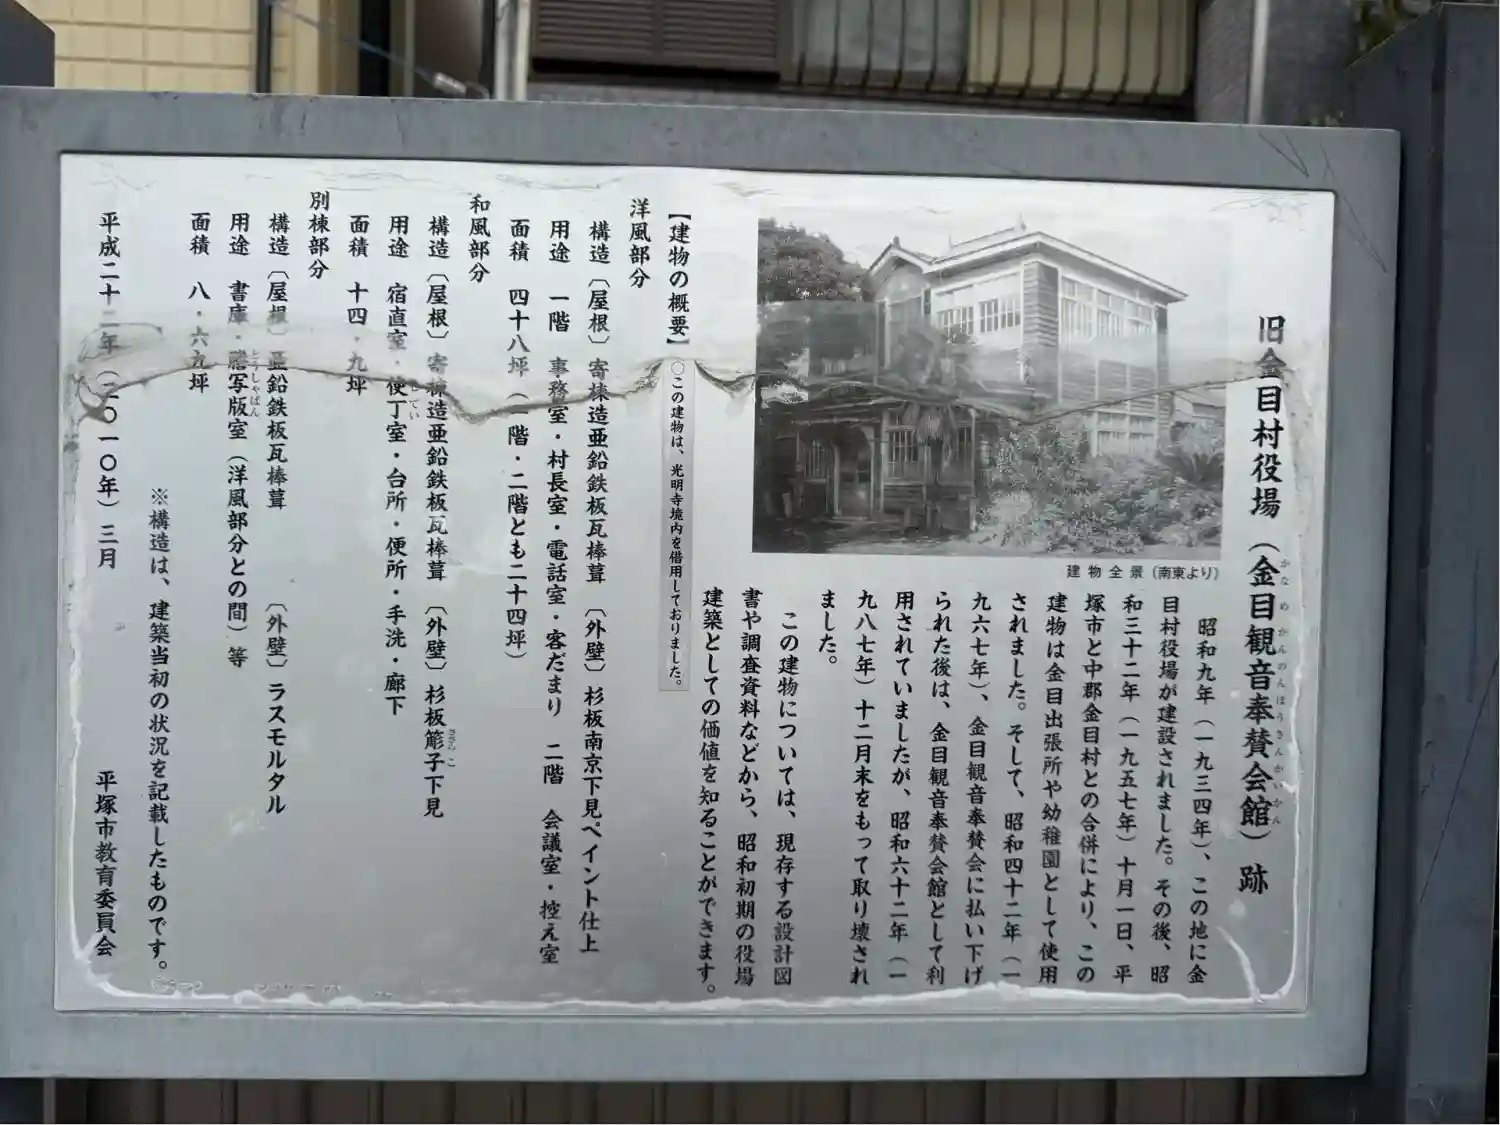 旧金目村役場（金目観音奉賛会館）跡
かなめかんのんほうさんかいかん
建物全景（南東より）
昭和九年（一九三四年）、この地に金
目村役場が建設されました。その後、昭
和三十二年（一九五七年）十月一日、平
塚市と中郡金目村との合併により、この
建物は金目出張所や幼稚園として使用
されました。そして、昭和四十二年（一
九六七年）、金目観音奉賛会に払い下げ
られた後は、金目観音奉賛会館として利
用されていましたが、昭和六十二年（一
九八七年）十二月末をもって取り壊され
ました。
この建物については、現存する設計図
書や調査資料などから、昭和初期の役場
建築としての価値を知ることができます。
【建物の概要】
○この建物は、光明寺境内を借用しておりました。
洋風部分
構造〔屋根〕寄棟造亜鉛鉄板瓦棒葺〔外壁〕杉板南京下見ペイント仕上
用途 一階 事務室・村長室・電話室・客だまり 二階 会議室・控え室
面積 四十八坪（一階・二階とも二十四坪）
和風部分
構造〔屋根〕寄棟造亜鉛鉄板瓦棒葺〔外壁〕杉板簓子下見
ささらこ
用途 宿直室・使丁室・台所・便所・手洗・廊下
してい
面積 十四・九坪
別棟部分
構造〔屋根〕亜鉛鉄板瓦棒葺〔外壁〕ラスモルタル
用途 書庫・謄写版室（洋風部分との間）等
とうしゃばん
面積 八・六九坪
※構造は、建築当初の状況を記載したものです。
平成二十二年（二〇一〇年）三月 平塚市教育委員会